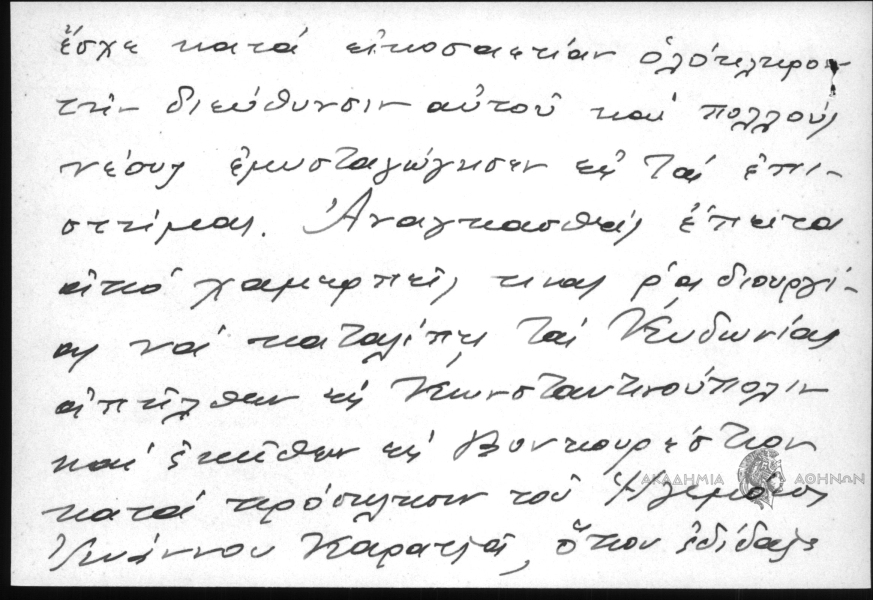 ἔσχε κατά εἰκοσαετίαν ὁλόκληρον
τήν διεύθυνσιν αὐτοῦ καί πολλούς
νέους ἐμυσταγώγησεν εἰς τάς ἐπι-
στήμας. Ἀναγκασθείς ἔπειτα
ἀπό χαμερπεῖς τινας ῥᾳδιουργί-
ας νά καταλίπῃ τάς Κυδωνίας
ἀπῆλθεν εἰς Κωνσταντινούπολιν
καί ἐκεῖθεν εἰς Βουκουρέστιον
κατά πρόσκλησιν τοῦ Ἡγεμόνος
Ἰωάννου Καρατζᾶ, ὅπου ἐδίδαξε
ΑΚΑΔΗΜΙΑ ΑΘΗΝΩΝ